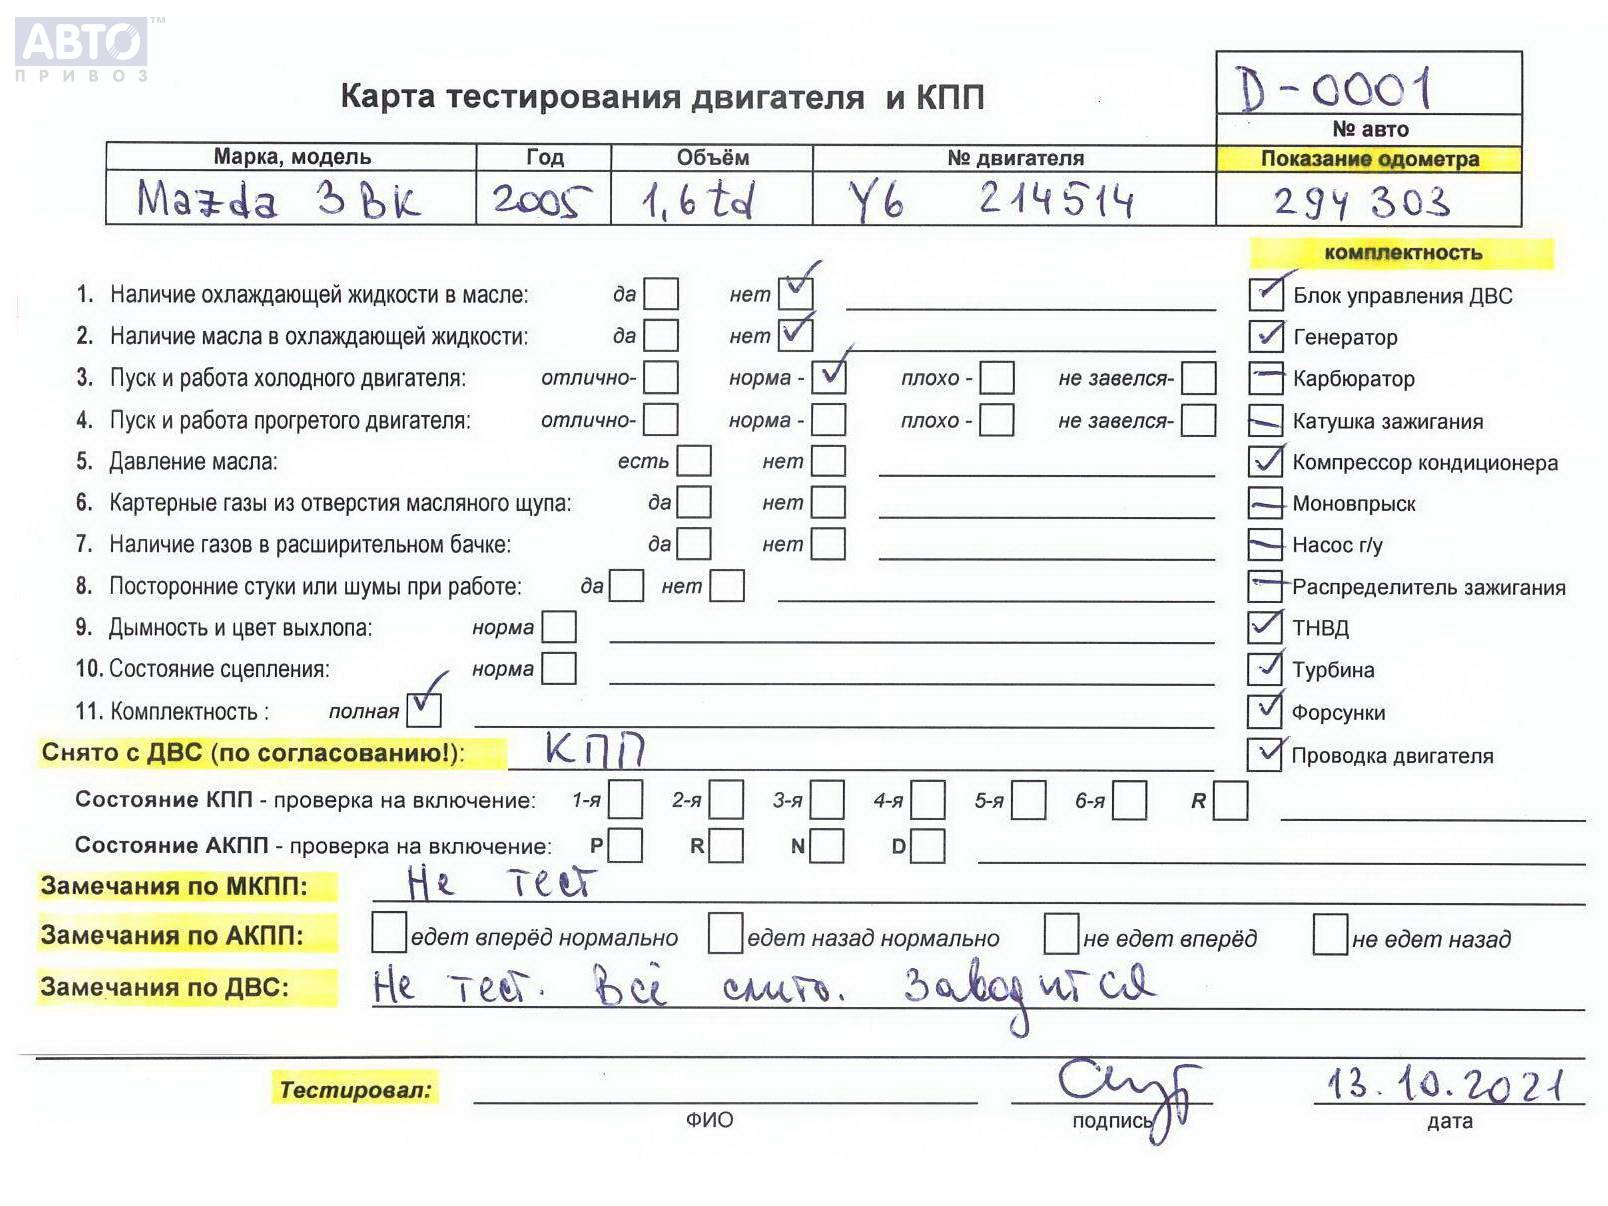 АВТО™
ПРИВОЗ
D-0001
Карта тестирования двигателя и КПП
№ авто
Марка, модель Год Объём № двигателя Показание одометра
Mazda 3 BK 2005 1,6 td Y6 214514 294 303
комплектность
1. Наличие охлаждающей жидкости в масле: да нет Блок управления ДВС
2. Наличие масла в охлаждающей жидкости: да нет Генератор
3. Пуск и работа холодного двигателя: отлично- норма - плохо - не завелся- Карбюратор
4. Пуск и работа прогретого двигателя: отлично- норма - плохо - не завелся- Катушка зажигания
5. Давление масла: есть нет Компрессор кондиционера
6. Картерные газы из отверстия масляного щупа: да нет Моновпрыск
7. Наличие газов в расширительном бачке: да нет Насос г/у
8. Посторонние стуки или шумы при работе: да нет Распределитель зажигания
9. Дымность и цвет выхлопа: норма ТНВД
10. Состояние сцепления: норма Турбина
11. Комплектность : полная Форсунки
Снято с ДВС (по согласованию!): КПП Проводка двигателя
Состояние КПП - проверка на включение: 1-я 2-я 3-я 4-я 5-я 6-я R
Состояние АКПП - проверка на включение: P R N D
Замечания по МКПП: Не тест
Замечания по АКПП: едет вперёд нормально едет назад нормально не едет вперёд не едет назад
Замечания по ДВС: Не тест. Всё слито. Заводится
Тестировал: 13.10.2021
ФИО подпись дата